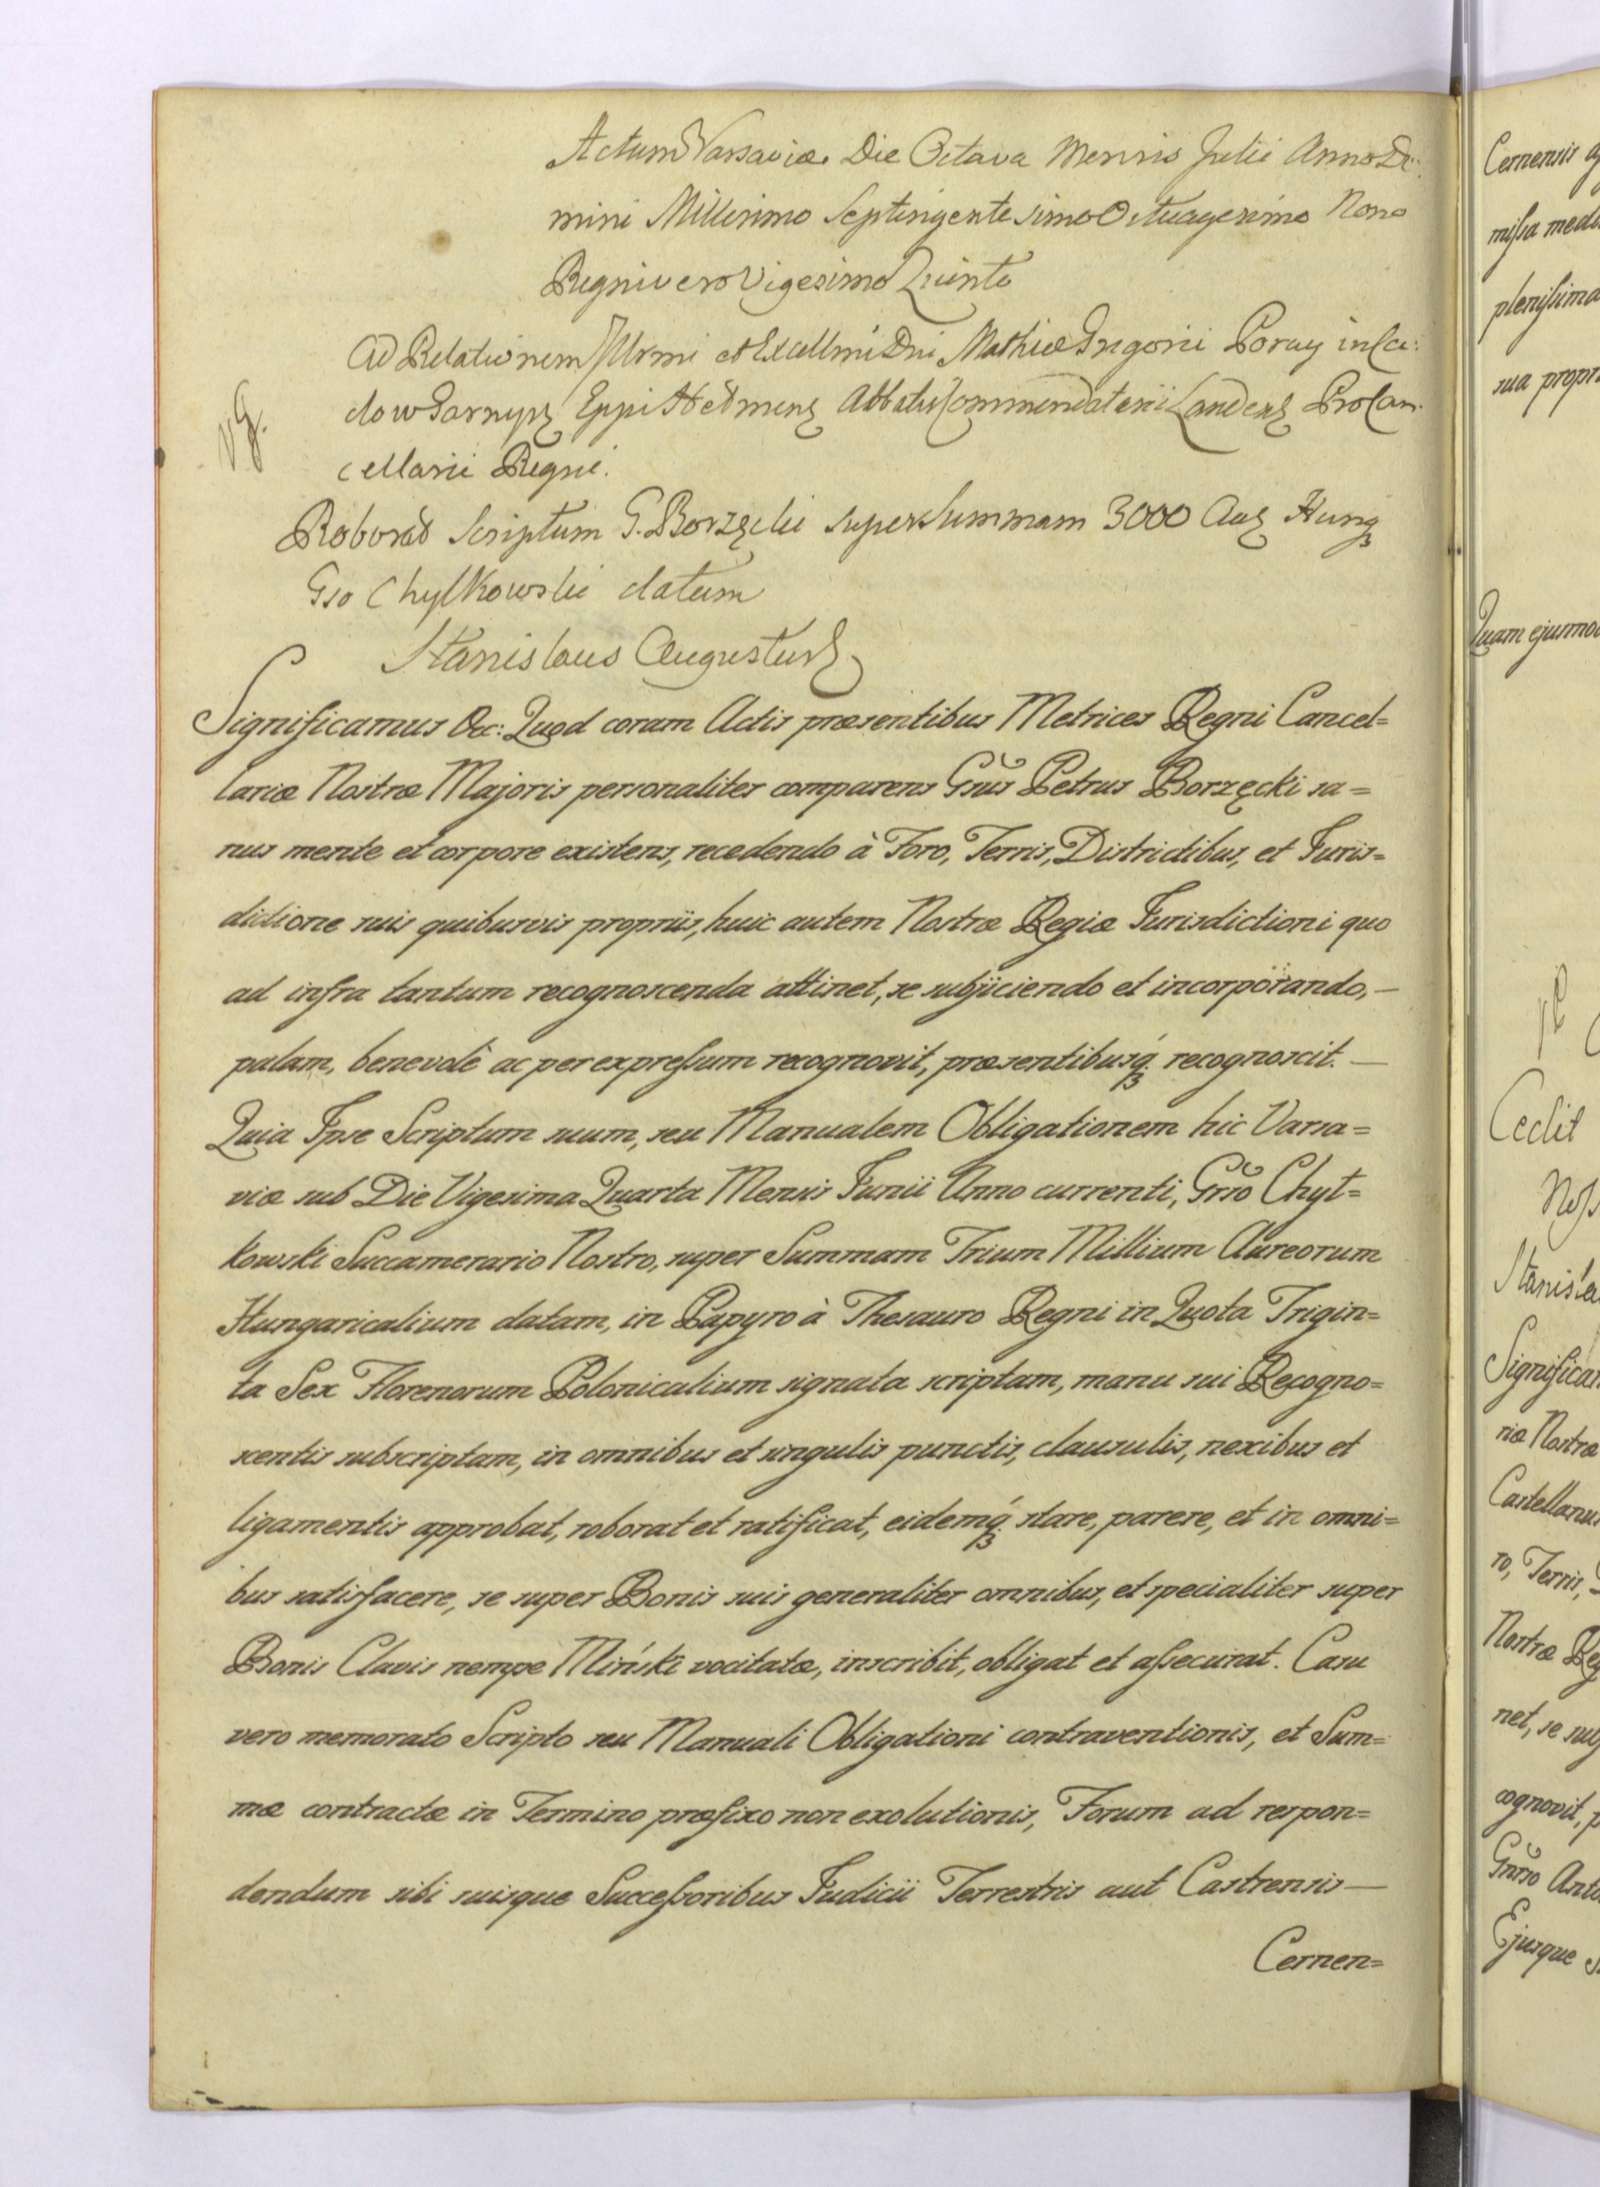 Actum Varsaviæ Die Octava Mensis Julii Anno Do:
mini Millesimo Septingentesimo Octuagesimo Nono
Regni vero Vigesimo Quinto
Ad Relationem Illrmi et Excellmi Dni Mathiæ Grzgorii Poray in Ca:
dow Garnysz Eppi Helmens Abbatis Commendatarii Landens ProCan:
cellarii Regni.
vG.
Roborat Scriptum G. Borzęcki super Summam 3000 Aur Hung
Gso Chylkowski datum
Stanislaus Augustus
Significamus &c: Quod coram Actis præsentibus Metrices Regni Cancel=
lariæ Nostræ Majoris personaliter comparens Gsus Petrus Borzęcki sa=
nus mente et corpore existens, recedendo à Foro, Terris, Districtibus, et Juris=
dictione suis quibusvis propriis, huic autem Nostræ Regiæ Jurisdictioni quo
ad infra tantum recognoscenda attinet, se subjiciendo et incorporando, —
palam, benevolè ac per expressum recognovit, præsentibusq recognoscit. —
Quia Ipse Scriptum suum, seu Manualem Obligationem hic Varsa=
viæ sub Die Vigesima Quarta Mensis Junii Anno currenti, Grso Chyt=
kowski Succamerario Nostro, super Summam Trium Millium Aureorum
Hungaricalium datam, in Papyro à Thesauro Regni in Quota Trigin=
ta Sex Florenorum Polonicalium signata scriptam, manu sui Recogno=
scentis subscriptam, in omnibus et singulis punctis, clausulis, nexibus et
ligamentis approbat, roborat et ratificat, eidemq stare, parere, et in omni=
bus satisfacere, se super Bonis suis generaliter omnibus, et specialiter super
Bonis Clavis nempe Miński vocitatæ, inscribit, obligat et assecurat. Casu
vero memorato Scripto seu Manuali Obligationi contraventionis, et Sum=
mæ contractæ in Termino præfixo non exolutionis, Forum ad respon=
dendum sibi suisque Successoribus Judicii Terrestris aut Castrensis —
Cernen=
Cernensis
missa
plenissima
sua
Quam
Cedit
Significa
riæ Nostræ
Castellanus
ro, Terris,
Nostræ
net, se
cognovit,
Ejusque